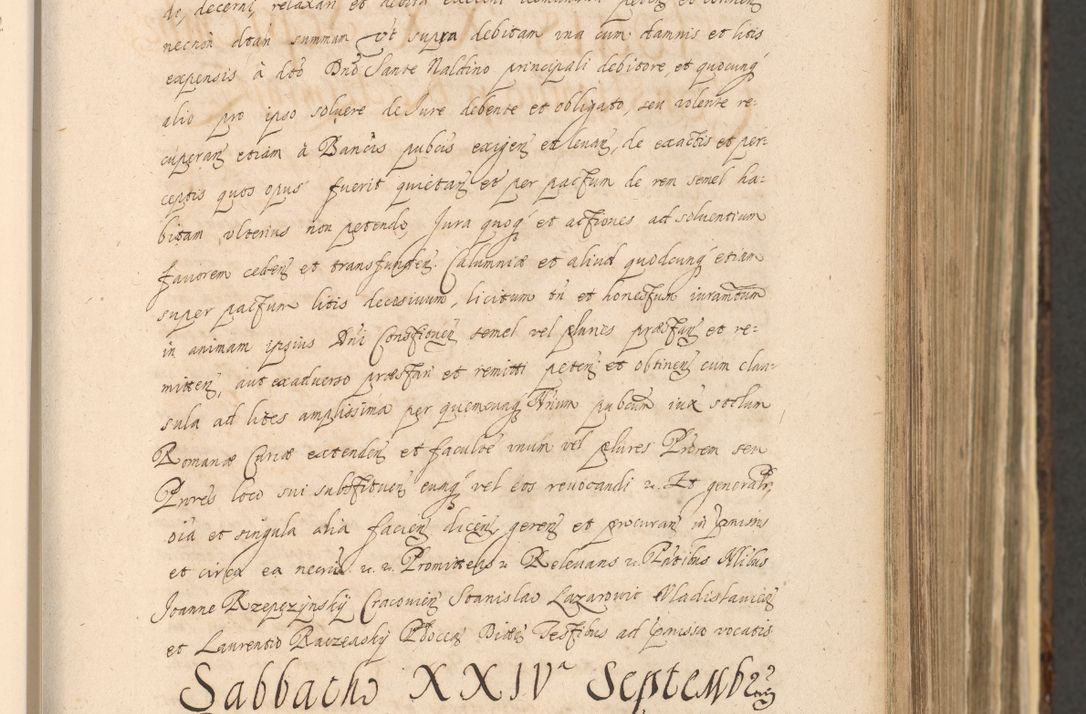 de, decerni, relaxari et
necnon dtan summan vt supra debitam vna cum damnis et litis
expensis à dto Dno Sante Naldino principali debitore, et quocunq
alio pro ipso soluere de Jure debente et obligato, seu volente re:
cuperan etiam à Bancis pubcis exigen et leuan, de exactis et per:
ceptis quos opus fuerit quietan et per pactum de rem semel ha:
bitam vlterius non petendo, Jura quoq et actiones ad soluentium
fauorem ceden et transfunden. Calumniæ et aliud quodcunq etiam
super pactum litis decisiuum, licitum tn et honestum iuramtum
in animam ipsius Dni Constituen semel vel plures præstan et re:
mitten, aut ex aduerso præstari et remitti peten et obtinen cum clau:
sula ad lites amplissima per quemcunq Nrium pubcum iux stylum
Romanæ Curiæ extenden et faculte vnum vel plures Procrem seu
Procres loco sui substituen eumq vel eos reuocandi u. Et generalr
oia et singula alia facien dicen, geren et procuran in præmissis
et circa ea necria u. u. Promittens u. Releuans u. Pntibus Nlibus
Joanne Rzepczynskÿ Cracouien Stanislao Lazarowic Vladislauien
et Laurentio Raczeaskÿ Plocen Dioec Testibus ad præmissa vocatis
Sabbatho XXIVa Septembris